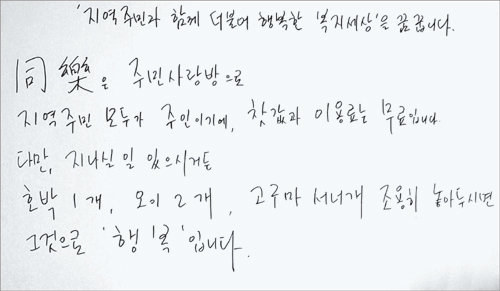 '지역주민과 함께 더불어 행복한 '복지세상'을 꿈꿉니다.
同樂은 주민사랑방으로
지역주민 모두가 주인이기에, 찻값과 이용료는 무료입니다.
다만, 지나실 일 있으시거든
호박 1개, 오이 2개, 고구마 서너개 조용히 놓아두시면
그것으로 '행복'입니다.